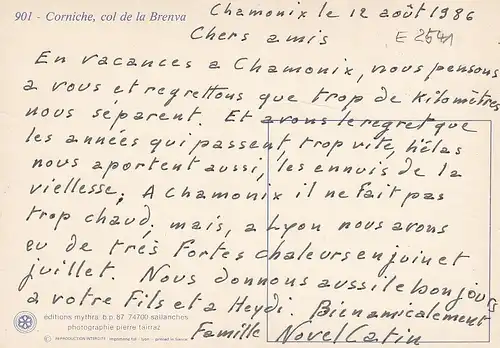 901 - Corniche, col de la Brenva
Chamonix le 12 août 1986
Chers amis
E 2541
En vacances a Chamonix, nous pensons
a vous et regrettons que trop de Kilomètres
nous séparent. Et avons le regret que
les années qui passent, trop vite, hélas
nous aportent aussi, les ennuis de la
viellesse; A Chamonix il ne fait pas
trop chaud, mais, a Lyon nous avons
eu de très Fortes chaleurs en juin et
juillet. Nous donnons aussi le bonjours
a votre Fils et a Heydi. Bien amicalement
Famille Novel Catin
éditions mythra b.p. 87 74700 sallanches
photographie pierre tairraz
© REPRODUCTION INTERDITE imprimerie printed in france